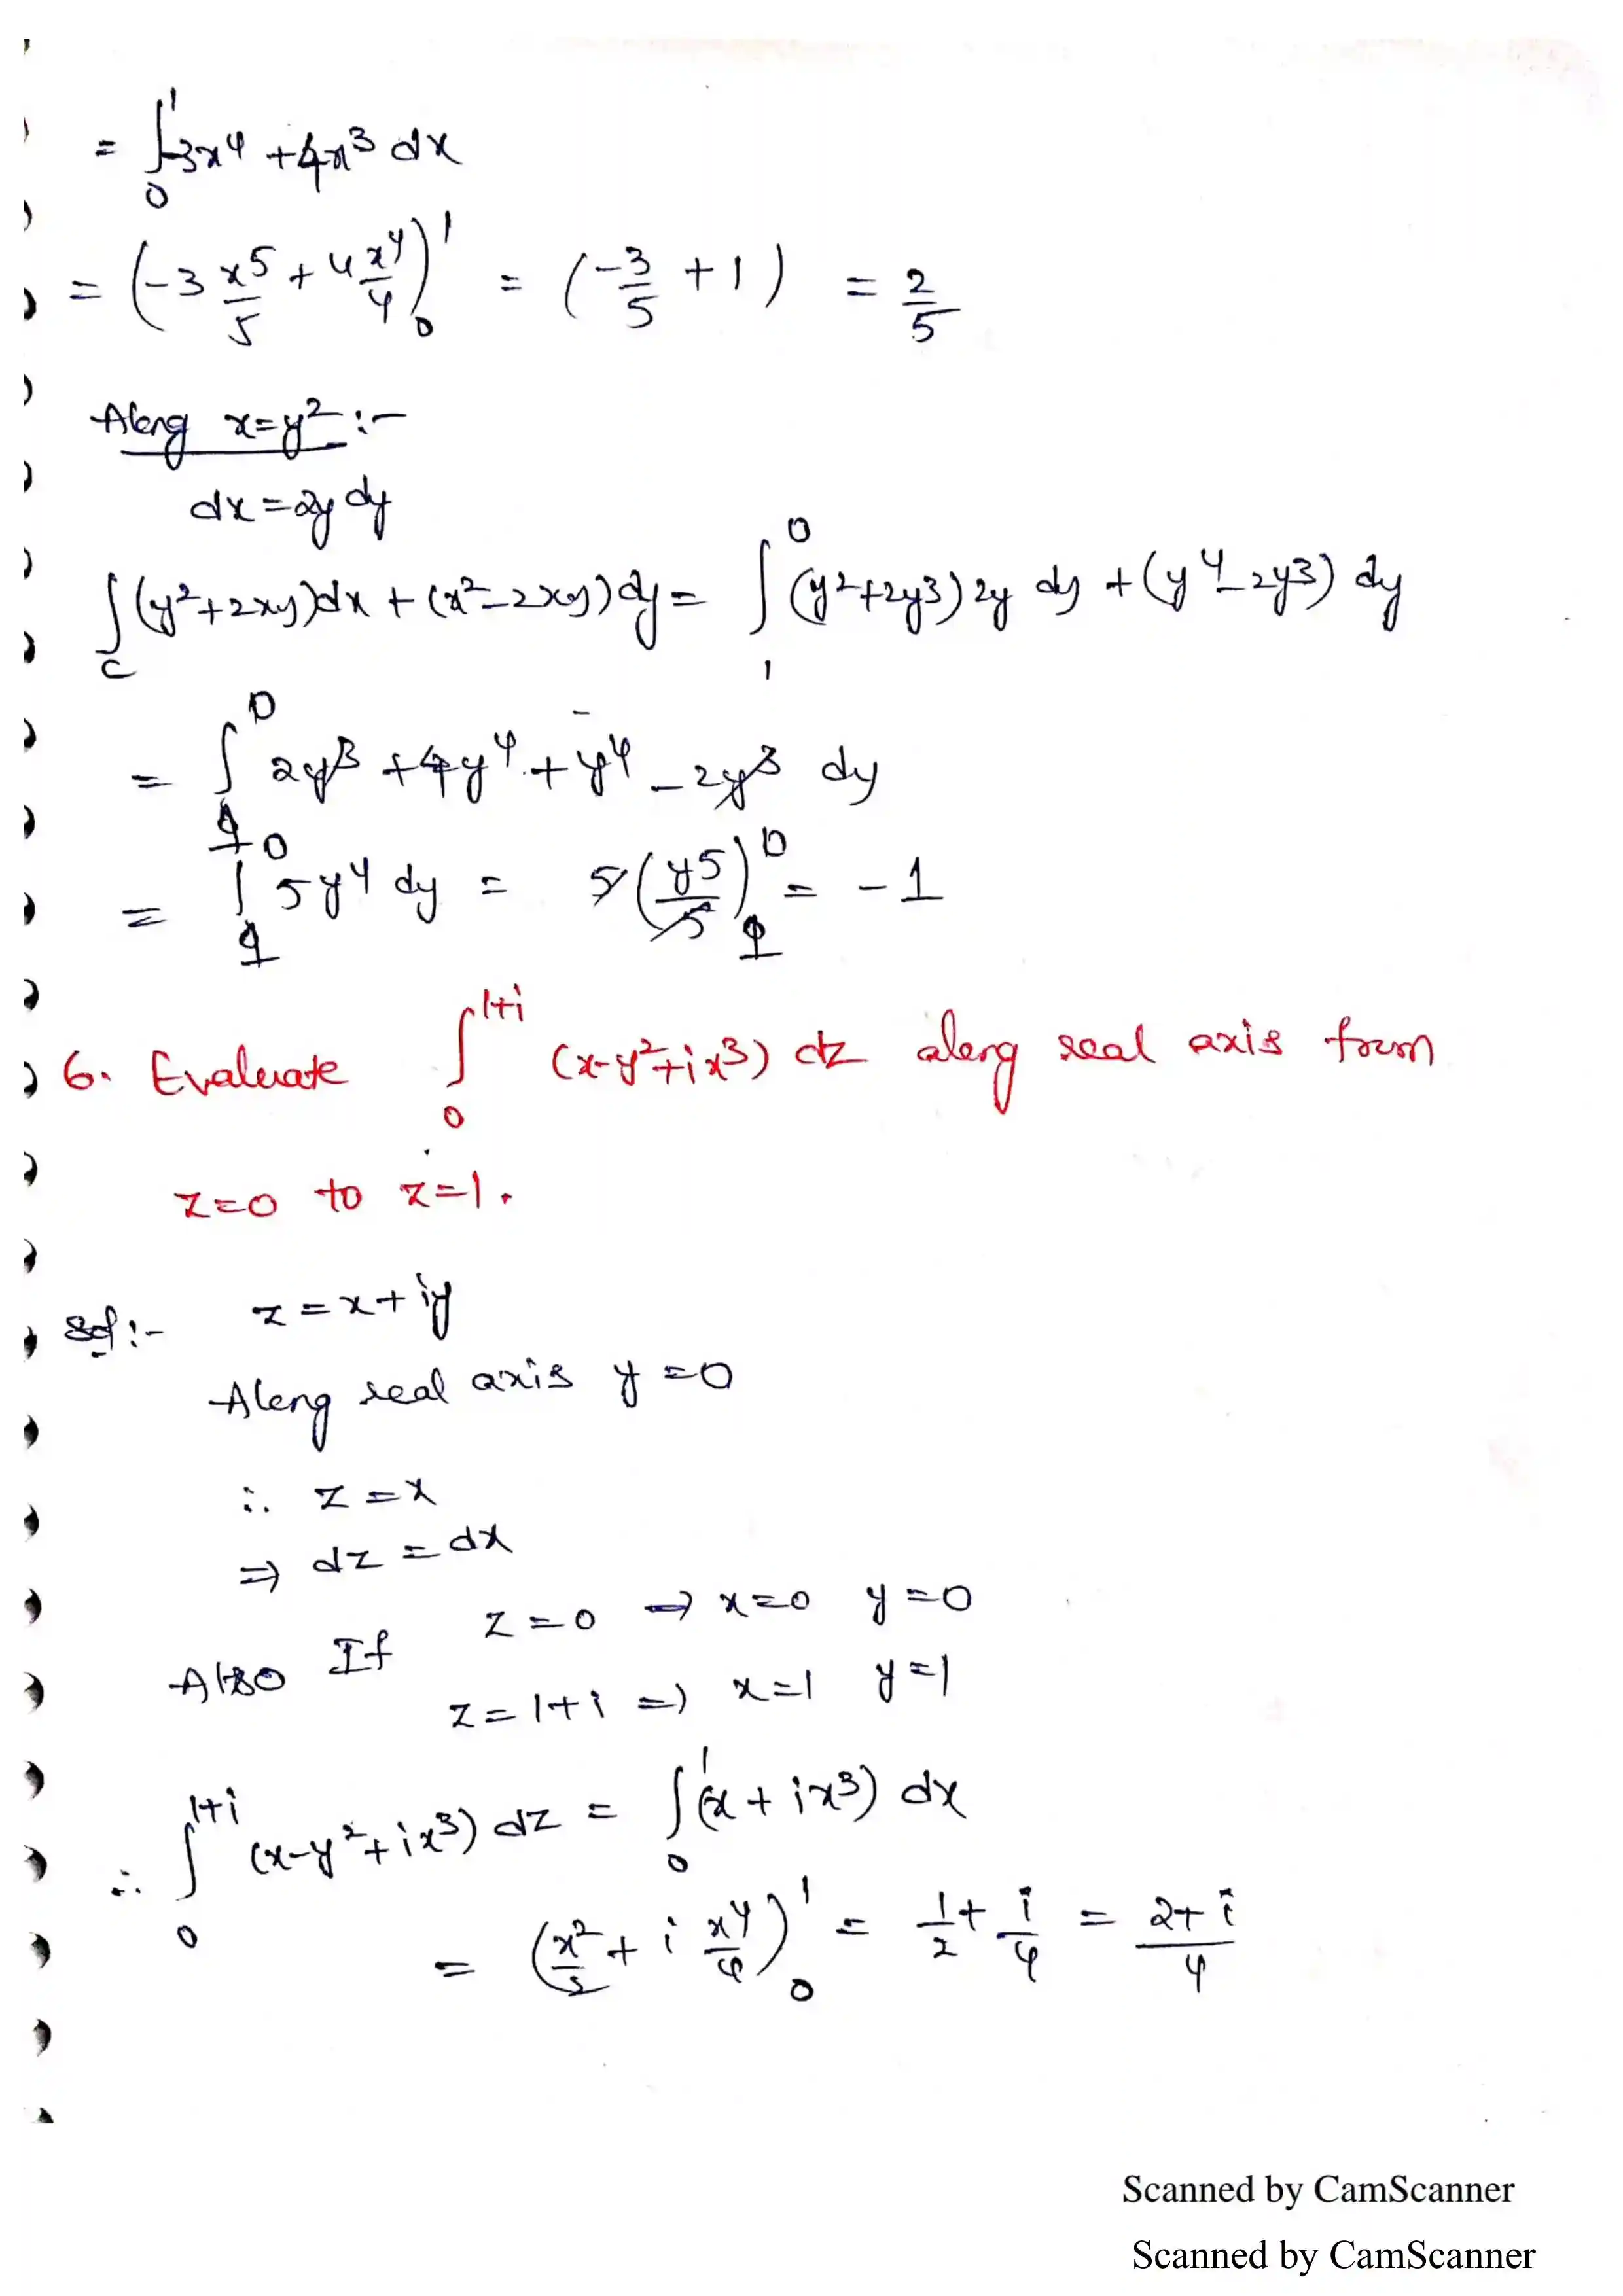 = ∫₀¹ -3x⁴ + 4x³ dx
= (-3 x⁵/5 + 4 x⁴/4)₀¹ = (-3/5 + 1) = 2/5
Along x=y² :-
dx = 2y dy
∫_C (y²+2xy)dx + (x²-2xy)dy = ∫₁⁰ (y²+2y³) 2y dy + (y⁴-2y³) dy
= ∫₁⁰ 2y³ + 4y⁴ + y⁴ - 2y³ dy
= ∫₁⁰ 5y⁴ dy = 5 (y⁵/5)₁⁰ = -1
6. Evaluate ∫₀¹⁺ⁱ (x-y²+ix³) dz along real axis from
z=0 to z=1.
Sol :- z = x + iy
Along real axis y = 0
∴ z = x
⇒ dz = dx
Also If z = 0 ⇒ x=0 y=0
z = 1+i ⇒ x=1 y=1
∴ ∫₀¹⁺ⁱ (x-y²+ix³) dz = ∫₀¹ (x + ix³) dx
= (x²/2 + i x⁴/4)₀¹ = 1/2 + i/4 = (2+i)/4
Scanned by CamScanner
Scanned by CamScanner